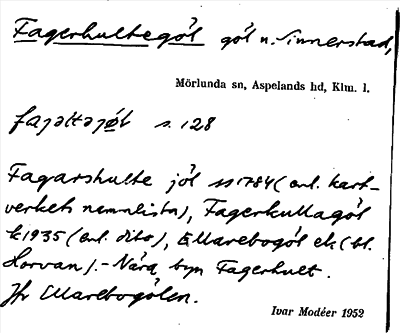 Fagerhultegöl göl n. Sinnerstad,
Mörlunda sn, Aspelands hd, Klm. l.
s. 128
Fagarshulte jöl 1784 (enl. kart-
verkets namnlista), Fagerkullagöl
k 1935 (enl. dito), Ellarebogöl ek (bl.
Horvan). - Nära byn Fagerhult.
Jfr Ellarebogölen.
Ivar Modéer 1952